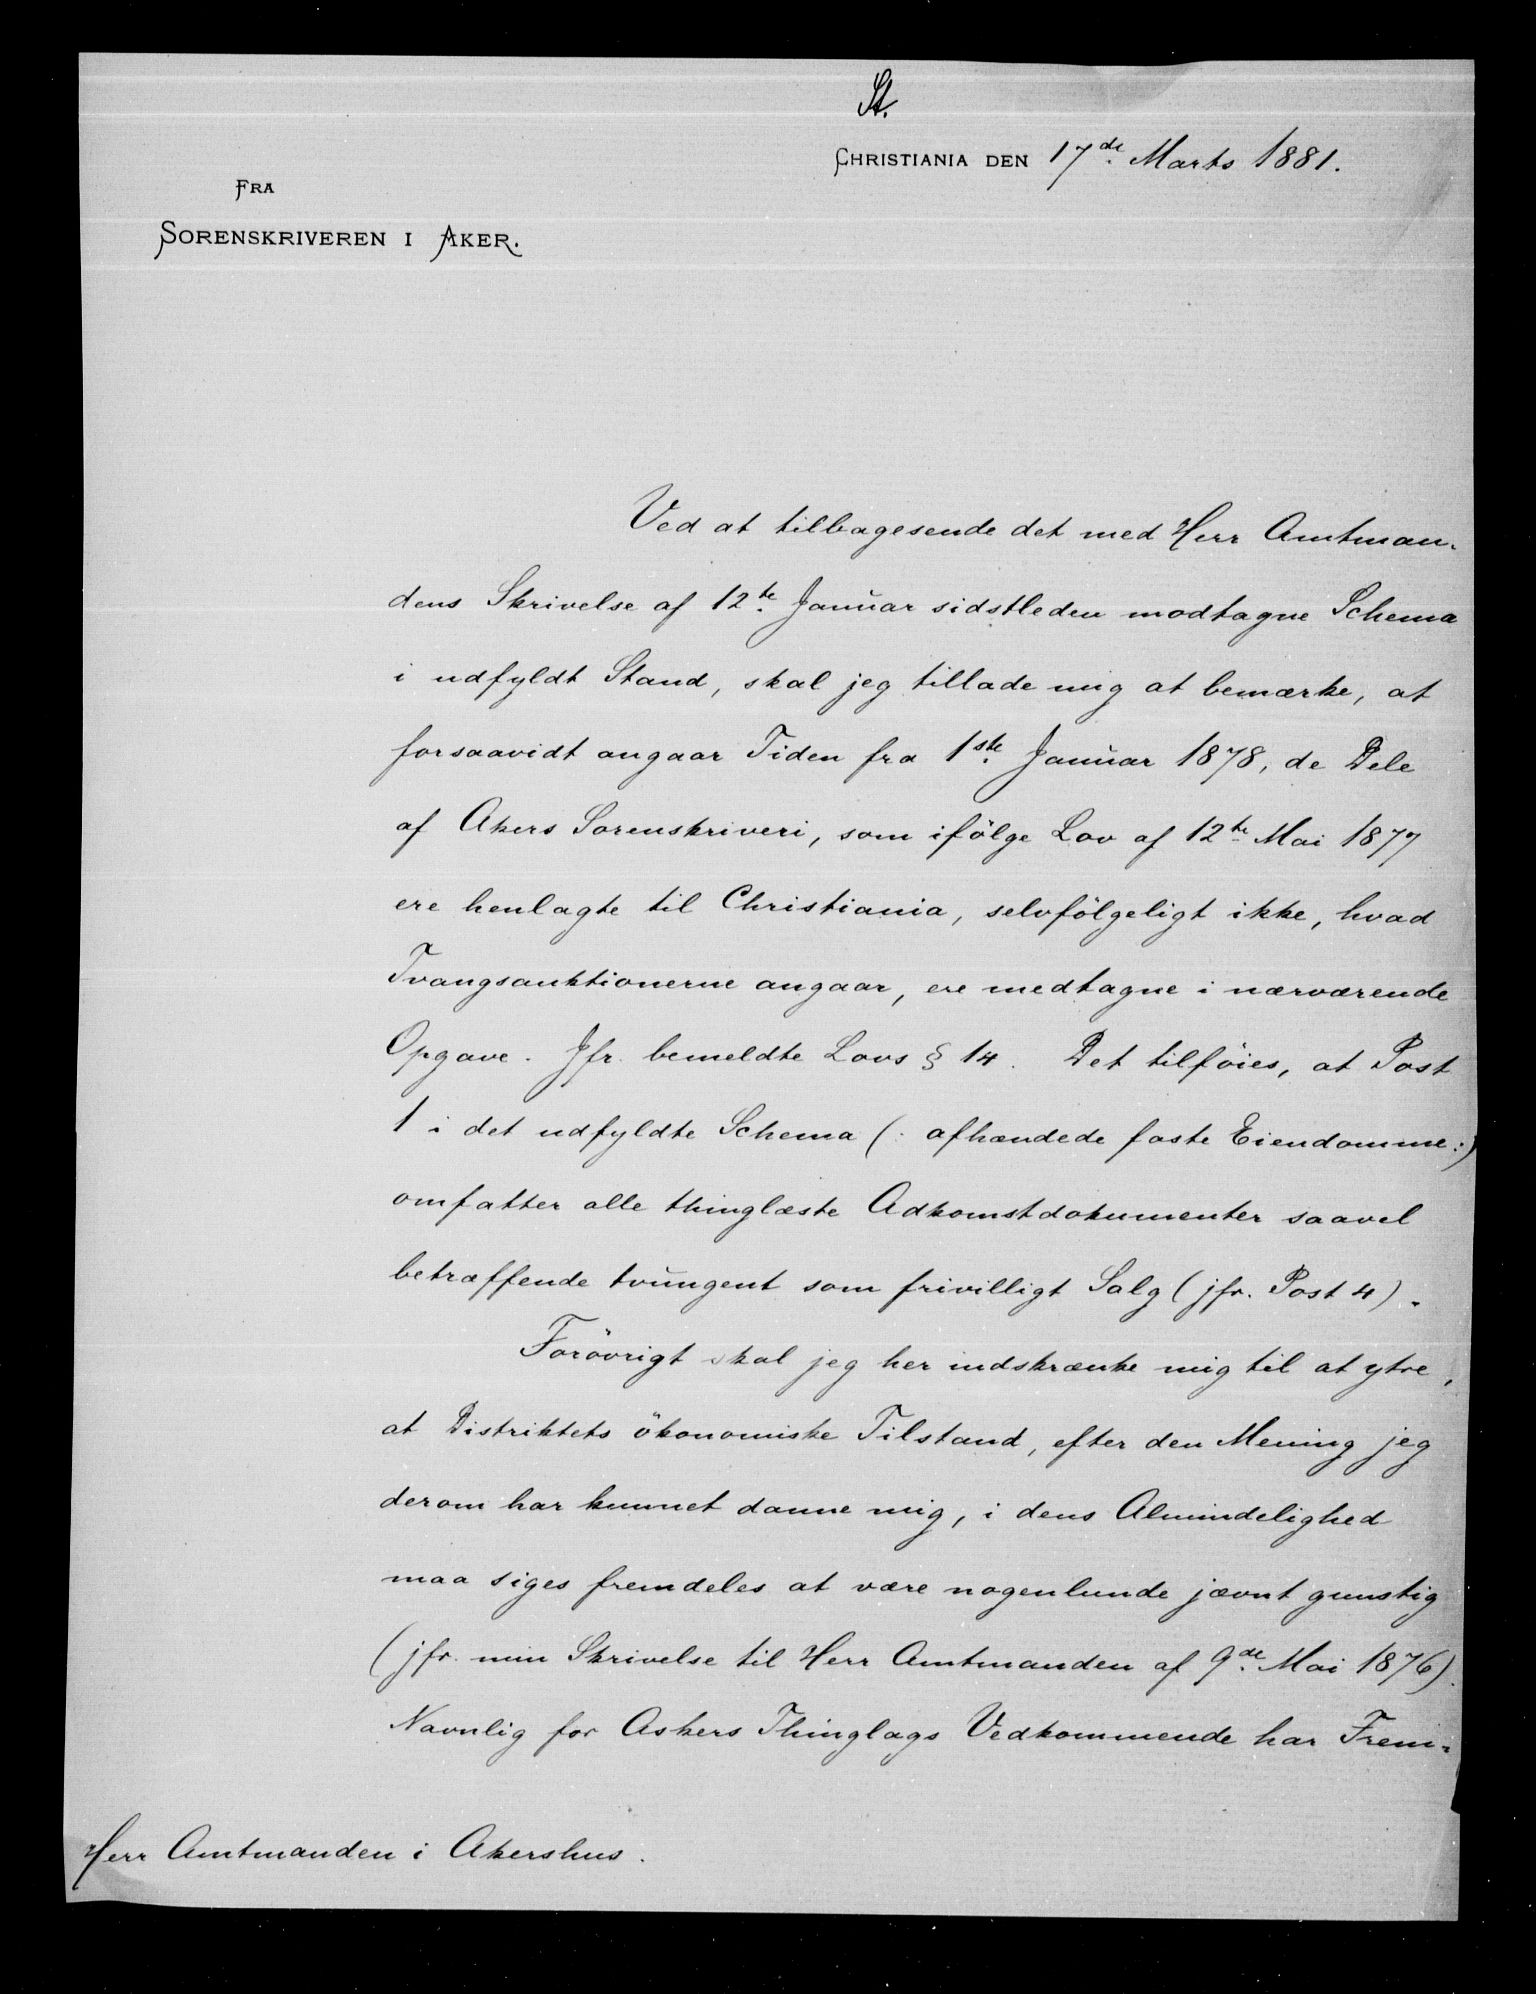 St.
CHRISTIANIA DEN 17de Marts 1881.
FRA
SORENSKRIVEREN I AKER.
Ved at tilbagesende det med Herr Amtman-
dens Skrivelse af 12te Januar sidstleden modtagne Schema
i udfyldt Stand, skal jeg tillade mig at bemærke, at
forsaavidt angaar Tiden fra 1ste Januar 1878, de Dele
af Akers Sorenskriveri, som ifölge Lov af 12te Mai 1877
ere henlagte til Christiania, selvfölgeligt ikke, hvad
Tvangsauktionerne angaar, ere medtagne i nærværende
Opgave. Jfr. bemeldte Lovs § 14. Det tilföies, at Post
1 i det udfyldte Schema (: afhændede faste Eiendomme :)
omfatter alle thinglæste Adkomstdokumenter saavel
betræffende tvungent som frivilligt Salg (jfr. Post 4).
Forövrigt skal jeg her indskrænke mig til at ytre,
at Distriktets ökonomiske Tilstand, efter den Mening jeg
derom har kunnet danne mig, i dens Almindelighed
maa siges fremdeles at være nogenlunde jævnt gunstig
(jfr. min Skrivelse til Herr Amtmanden af 9de Mai 1876).
Navnlig for Askers Thinglags Vedkommende har Frem-
Herr Amtmanden i Akershus.